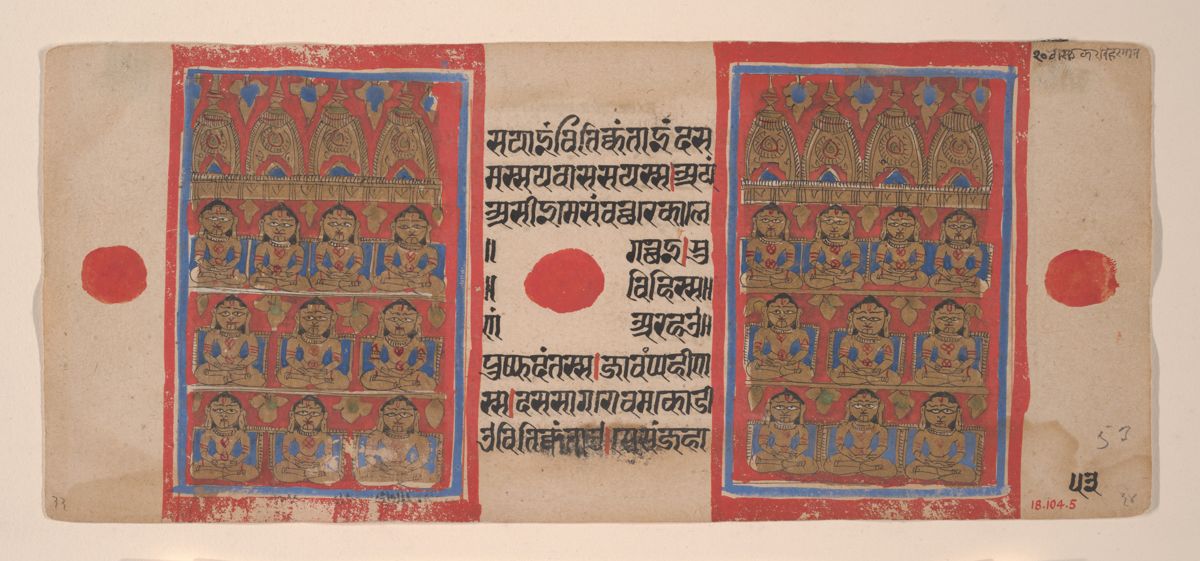 सयाइंवितिक्कंताइंदस
मस्सयवाससयस्स।अयं
असीइमेसंवच्छरेकाले
॥ गच्छइ।सु
॥ विहिस्स॥
णं अरहउ॥
पुप्फदंतस्स।जावप्पहीण
स्स।दससागरोवमकोडी
उवितिक्कंताउ।सेसंजहा
विहरमान
53
५३
18.104.5
३३
३४